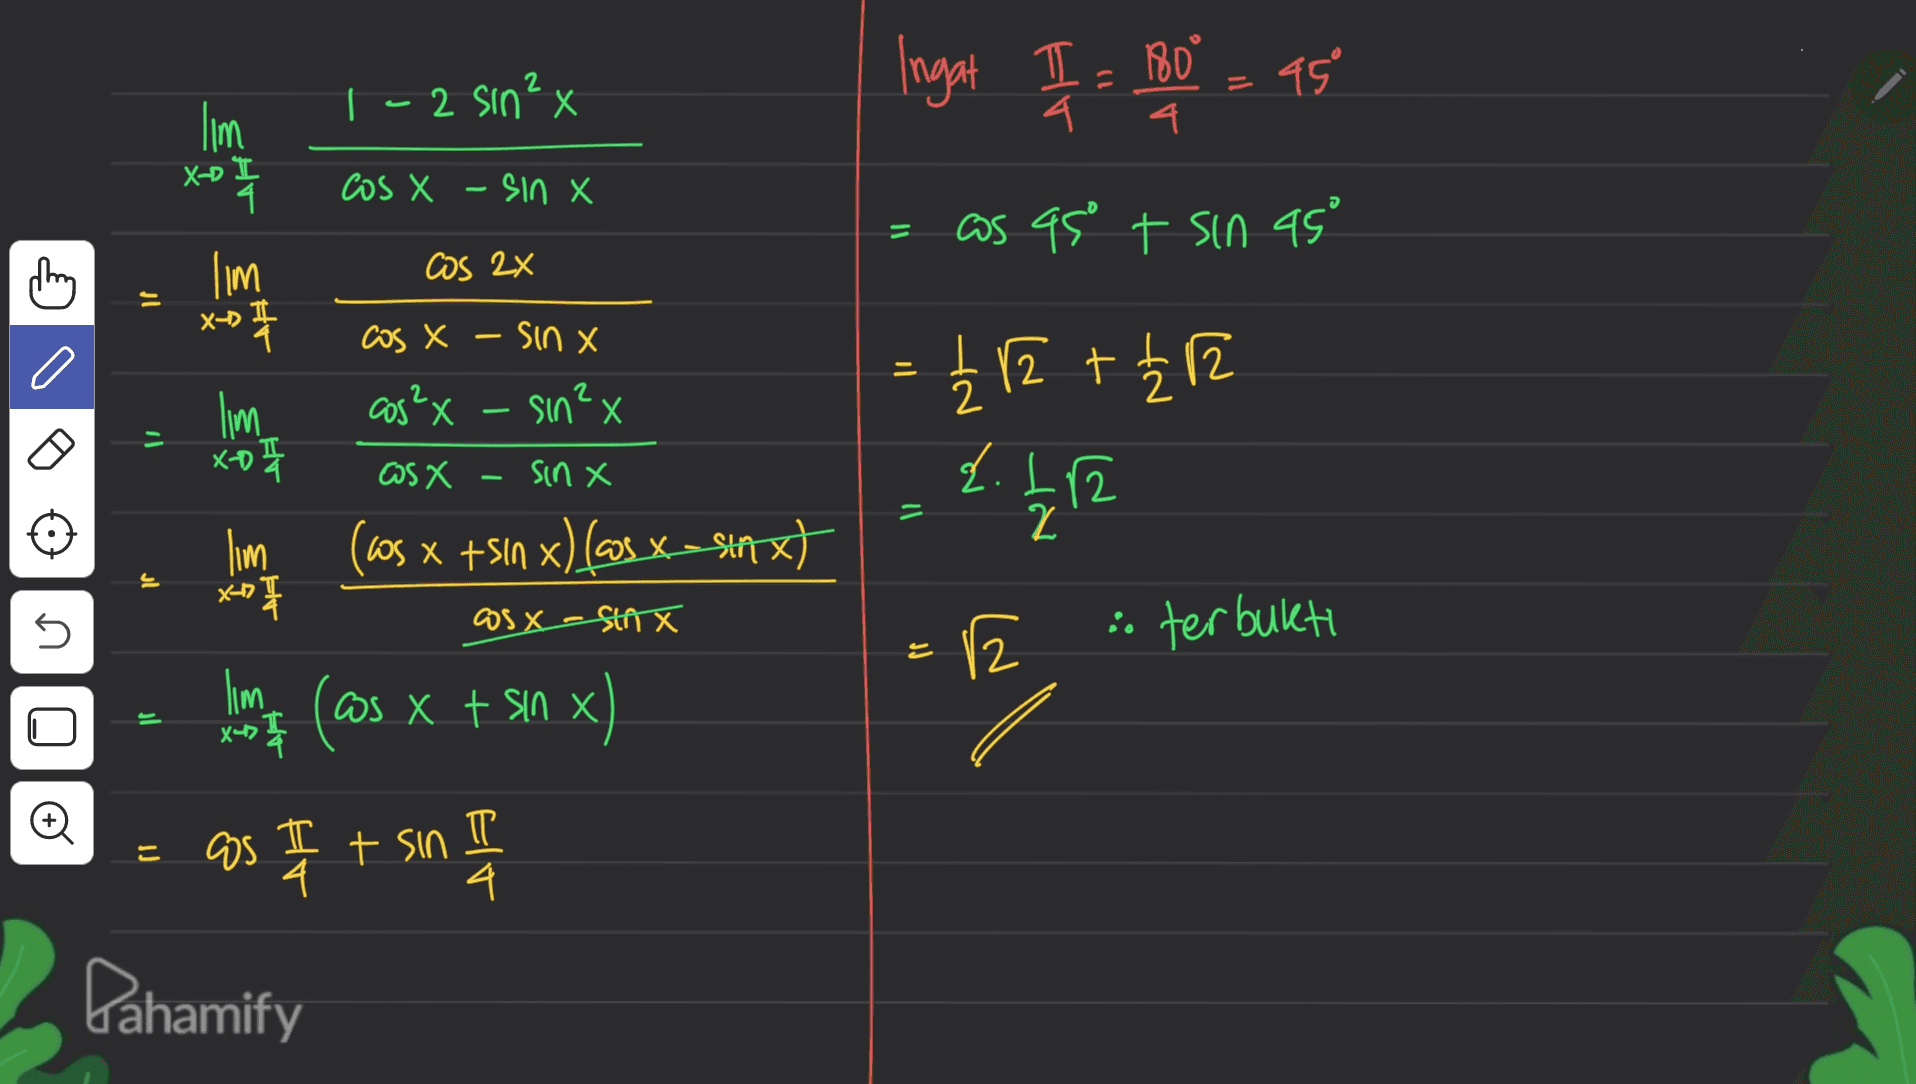 lim x→π/4 (1 - 2 sin² x)/(cos x - sin x)
= lim x→π/4 (cos 2x)/(cos x - sin x)
= lim x→π/4 (cos² x - sin² x)/(cos x - sin x)
= lim x→π/4 ((cos x + sin x)(cos x - sin x))/(cos x - sin x)
= lim x→π/4 (cos x + sin x)
= cos π/4 + sin π/4
Ingat π/4 = 180°/4 = 45°
= cos 45° + sin 45°
= 1/2 √2 + 1/2 √2
= 2 . 1/2 √2
= √2 ∴ terbukti
Pahamify